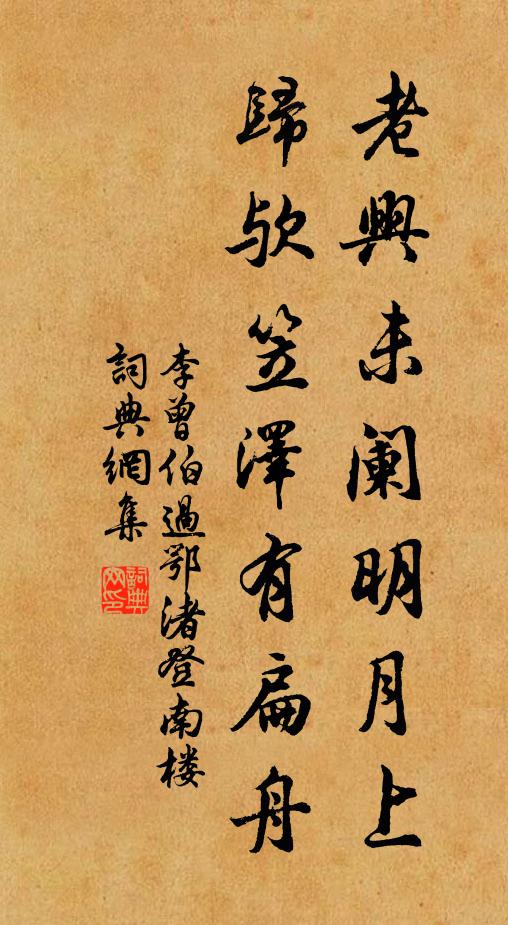 老興未闌明月上
歸欤笠澤有扁舟
李曾伯過鄂渚登南楼
詞典網集
詞典网印